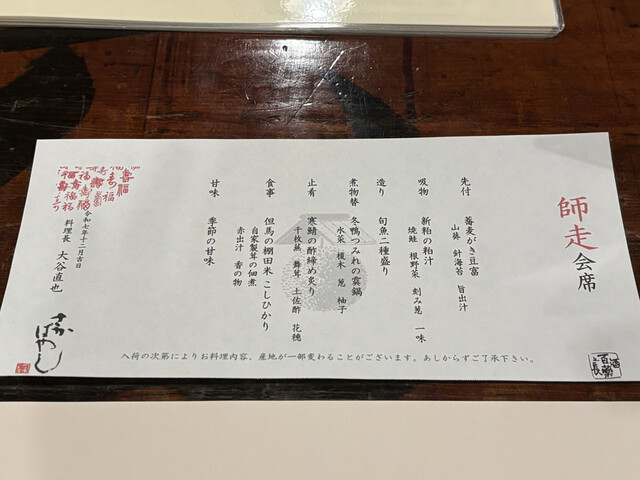 師走会席
先付 蕎麦がき豆富
山葵 針海苔 旨出汁
吸物 新粕の粕汁
焼鮭 根野菜 刻み葱 一味
造り 旬魚二種盛り
煮物替 冬鴨つみれの霙鍋
水菜 榎木 葱 柚子
止肴 寒鯖の酢締め炙り
千枚蕪 舞茸 土佐酢 花穂
食事 但馬の棚田米 こしひかり
自家製茸の佃煮
赤出汁 香の物
甘味 季節の甘味
令和七年十二月吉日
料理長 大谷直也
入荷の次第によりお料理内容、産地が一部変わることがございます。あしからずご了承下さい。
酒百薬之長